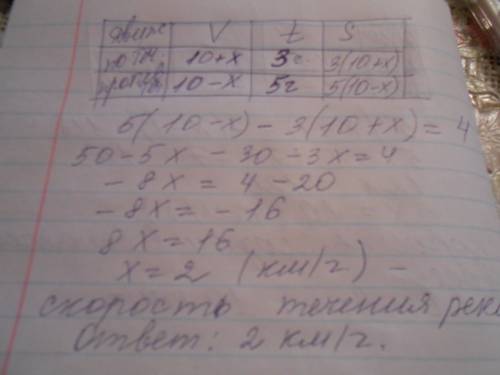 движ V t S
по теч. 10+x 3г 3(10+x)
против 10-x 5г 5(10-x)
5(10-x) - 3(10+x) = 4
50-5x - 30-3x=4
-8x = 4-20
-8x= -16
8x=16
x=2 (км/г) -
скорость течения реки
Ответ: 2 км/г.